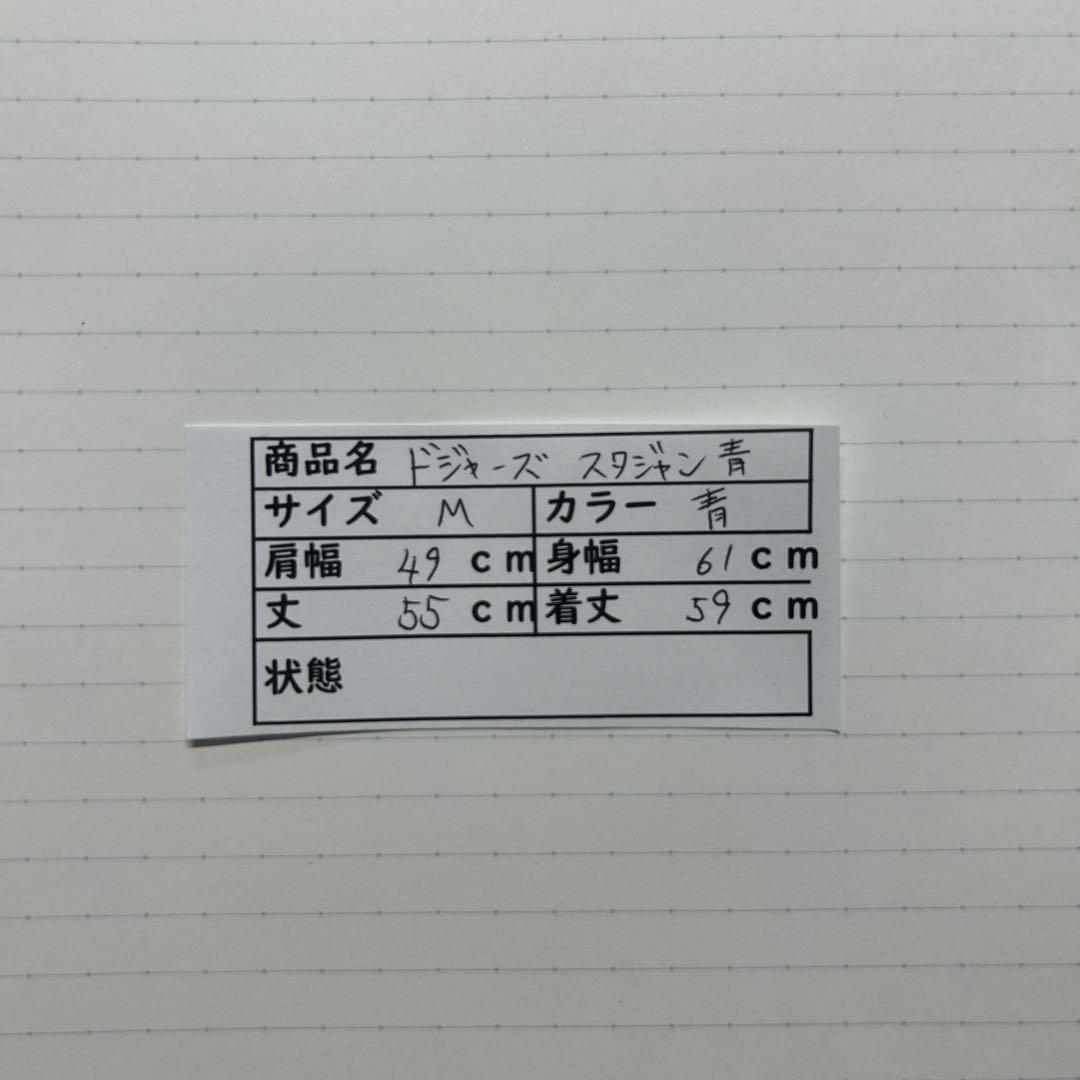 商品名 ドジャーズ スタジャン 青
サイズ M カラー 青
肩幅 49 cm 身幅 61 cm
丈 55 cm 着丈 59 cm
状態